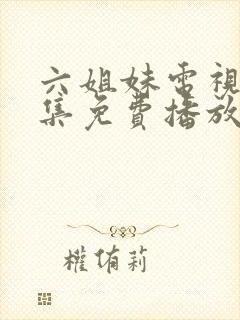 六姐妹電視
集免費播放
權侑莉